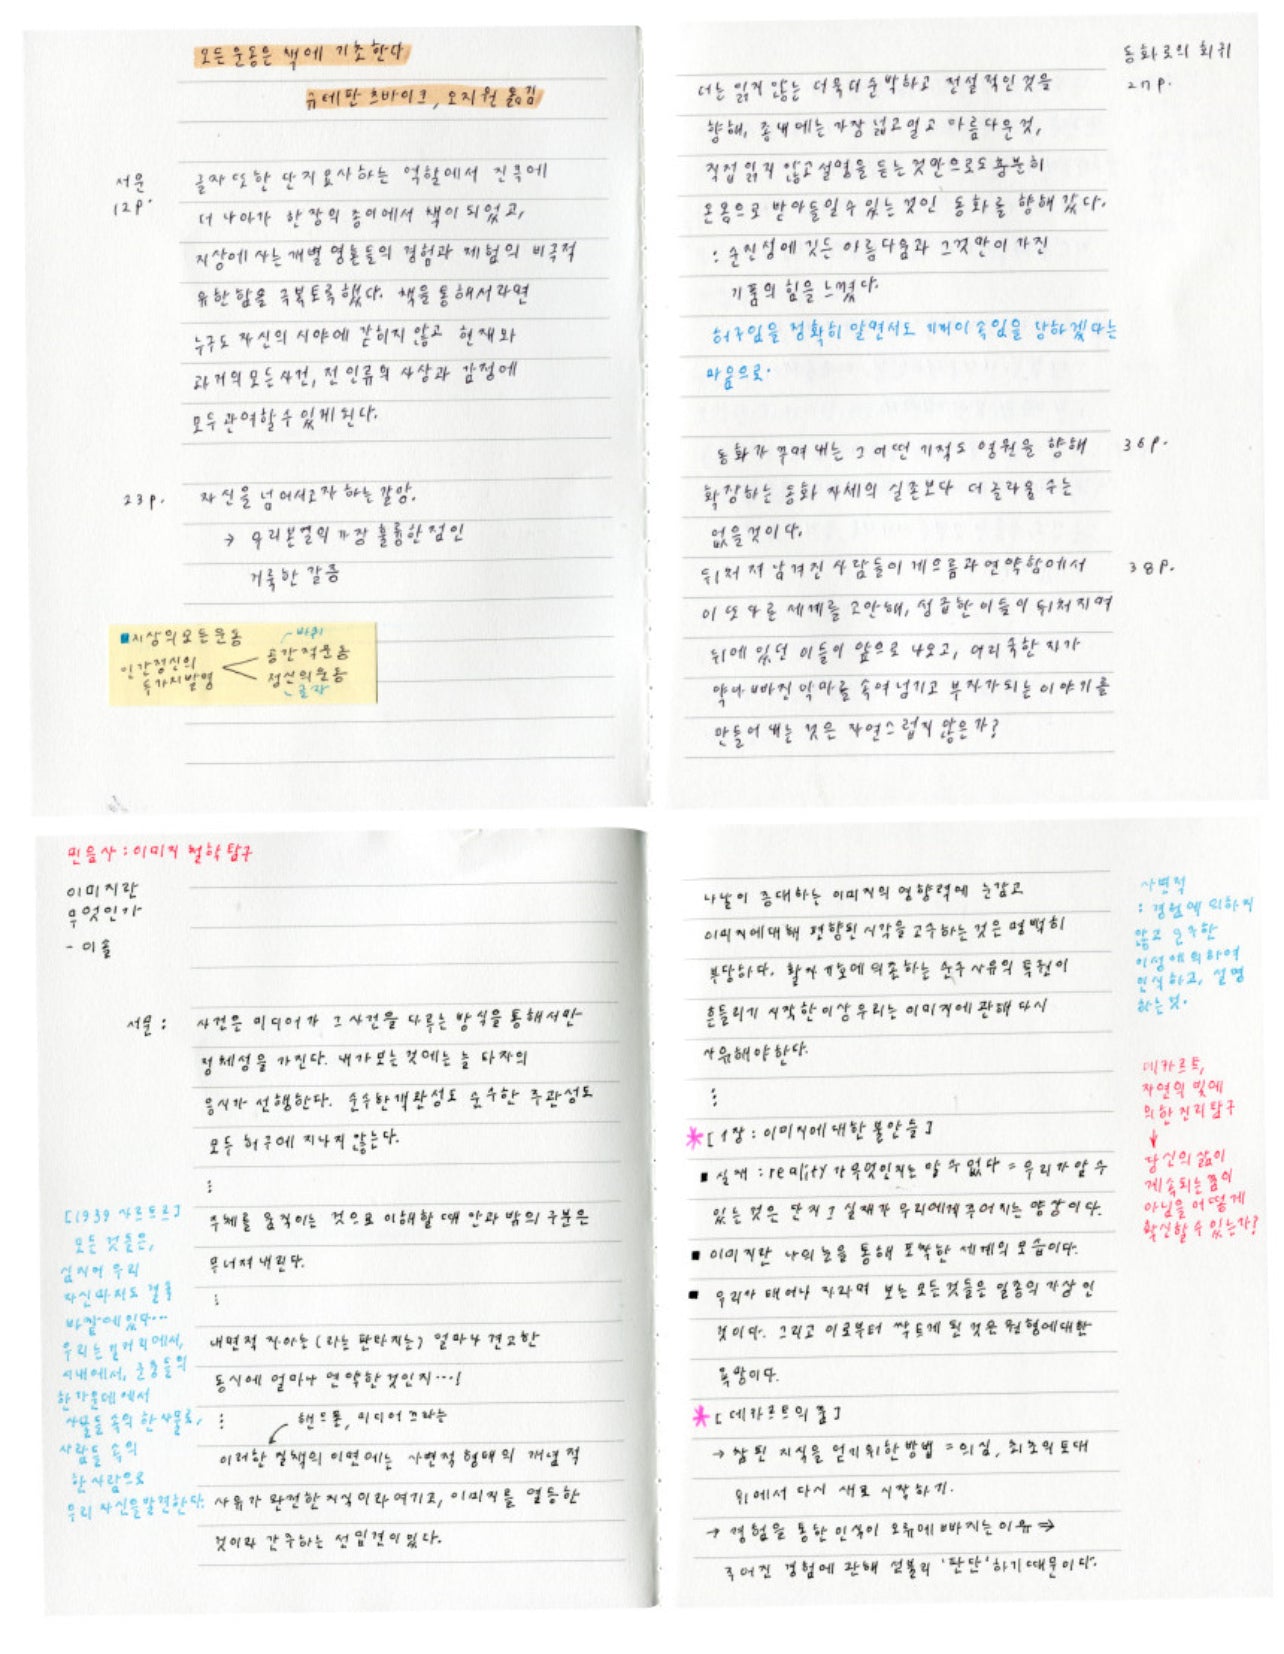 모든 운동은 책에 기초한다
슈테판 츠바이크, 오지원 옮김
서문
12p.
글자 또한 단지 묘사하는 역할에서 진즉에
더 나아가 한 장의 종이에서 책이 되었고,
지상에 사는 개별 영혼들의 경험과 체험의 비극적
유한함을 극복토록 했다. 책을 통해서라면
누구도 자신의 시야에 갇히지 않고 현재와
과거의 모든 사건, 전 인류의 사상과 감정에
모두 관여할 수 있게 된다.
23p.
자신을 넘어서고자 하는 갈망.
→ 우리 본연의 가장 훌륭한 점인
거룩한 갈증
■지상의 모든 운동
바퀴
인간정신의
두가지 발명
공간적 운동
정신의 운동
글자
동화로의 회귀
27p.
더는 읽지 않는 더욱 더 순박하고 전설적인 것을
향해, 종내에는 가장 넓고 멀고 아름다운 것,
직접 읽지 않고 설명을 듣는 것만으로도 충분히
온몸으로 받아들일 수 있는 것인 동화를 향해 갔다.
: 순진성에 깃든 아름다움과 그것만이 가진
기품의 힘을 느꼈다.
허구임을 정확히 알면서도 기꺼이 속임을 당하겠다는
마음으로.
동화가 꾸며 내는 그 어떤 기적도 영원을 향해
36p.
확장하는 동화 자체의 실존보다 더 놀라울 수는
없을 것이다.
뒤처져 남겨진 사람들이 게으름과 연약함에서
38p.
이 또 다른 세계를 고안해, 성급한 이들이 뒤처지며
뒤에 있던 이들이 앞으로 나오고, 어리숙한 자가
약아빠진 악마를 속여 넘기고 부자가 되는 이야기를
만들어 내는 것은 자연스럽지 않은가?
민음사 : 이미지 철학 탐구
이미지란
무엇인가
- 이솔
서문 :
사건은 미디어가 그 사건을 다루는 방식을 통해서만
정체성을 가진다. 내가 보는 것에는 늘 타자의
응시가 선행한다. 순수한 객관성도 순수한 주관성도
모두 허구에 지나지 않는다.
⋮
주체를 움직이는 것으로 이해할 때 안과 밖의 구분은
무너져 내린다.
⋮
내면적 자아는 (라는 판타지는) 얼마나 견고한
동시에 얼마나 연약한 것인지…!
⋮
핸드폰, 미디어 크라는
이러한 질책의 이면에는 사변적 형태의 개념적
사유가 완전한 지식이라 여기고, 이미지를 열등한
것이라 간주하는 선입견이 있다.
[1939 사르트르]
모든 것들은,
심지어 우리
자신마저도 결국
바깥에 있다…
우리는 길거리에서,
시내에서, 군중들의
한가운데에서
사물들 속의 한 사물로,
사람들 속의
한 사람으로
우리 자신을 발견한다.
나날이 증대하는 이미지의 영향력에 눈감고
이미지에 대해 편향된 시각을 고수하는 것은 명백히
부당하다. 활자 기호에 의존하는 순수 사유의 특권이
흔들리기 시작한 이상 우리는 이미지에 관해 다시
사유해야 한다.
⋮
*[1장 : 이미지에 대한 불안들]
■ 실재 : reality가 무엇인지는 알 수 없다 = 우리가 알 수
있는 것은 단지 그 실재가 우리에게 주어지는 양상이다.
■ 이미지란 나의 눈을 통해 포착한 세계의 모습이다.
■ 우리가 태어나 자라며 보는 모든 것들은 일종의 가상인
것이다. 그리고 이로부터 싹트게 된 것은 원형에 대한
욕망이다.
*[데카르트의 꿈]
→ 참된 지식을 얻기 위한 방법 = 의심, 최초의 토대
위에서 다시 새로 시작하기.
→ 경험을 통한 인식이 오류에 빠지는 이유 ⇒
주어진 경험에 관해 섣불리 '판단'하기 때문이다.
사변적
: 경험에 의하지
않고 순수한
이성에 의하여
인식하고, 설명
하는 것.
데카르트,
자연의 빛에
의한 진리 탐구
↓
당신의 삶이
계속되는 꿈이
아님을 어떻게
확신할 수 있는가?